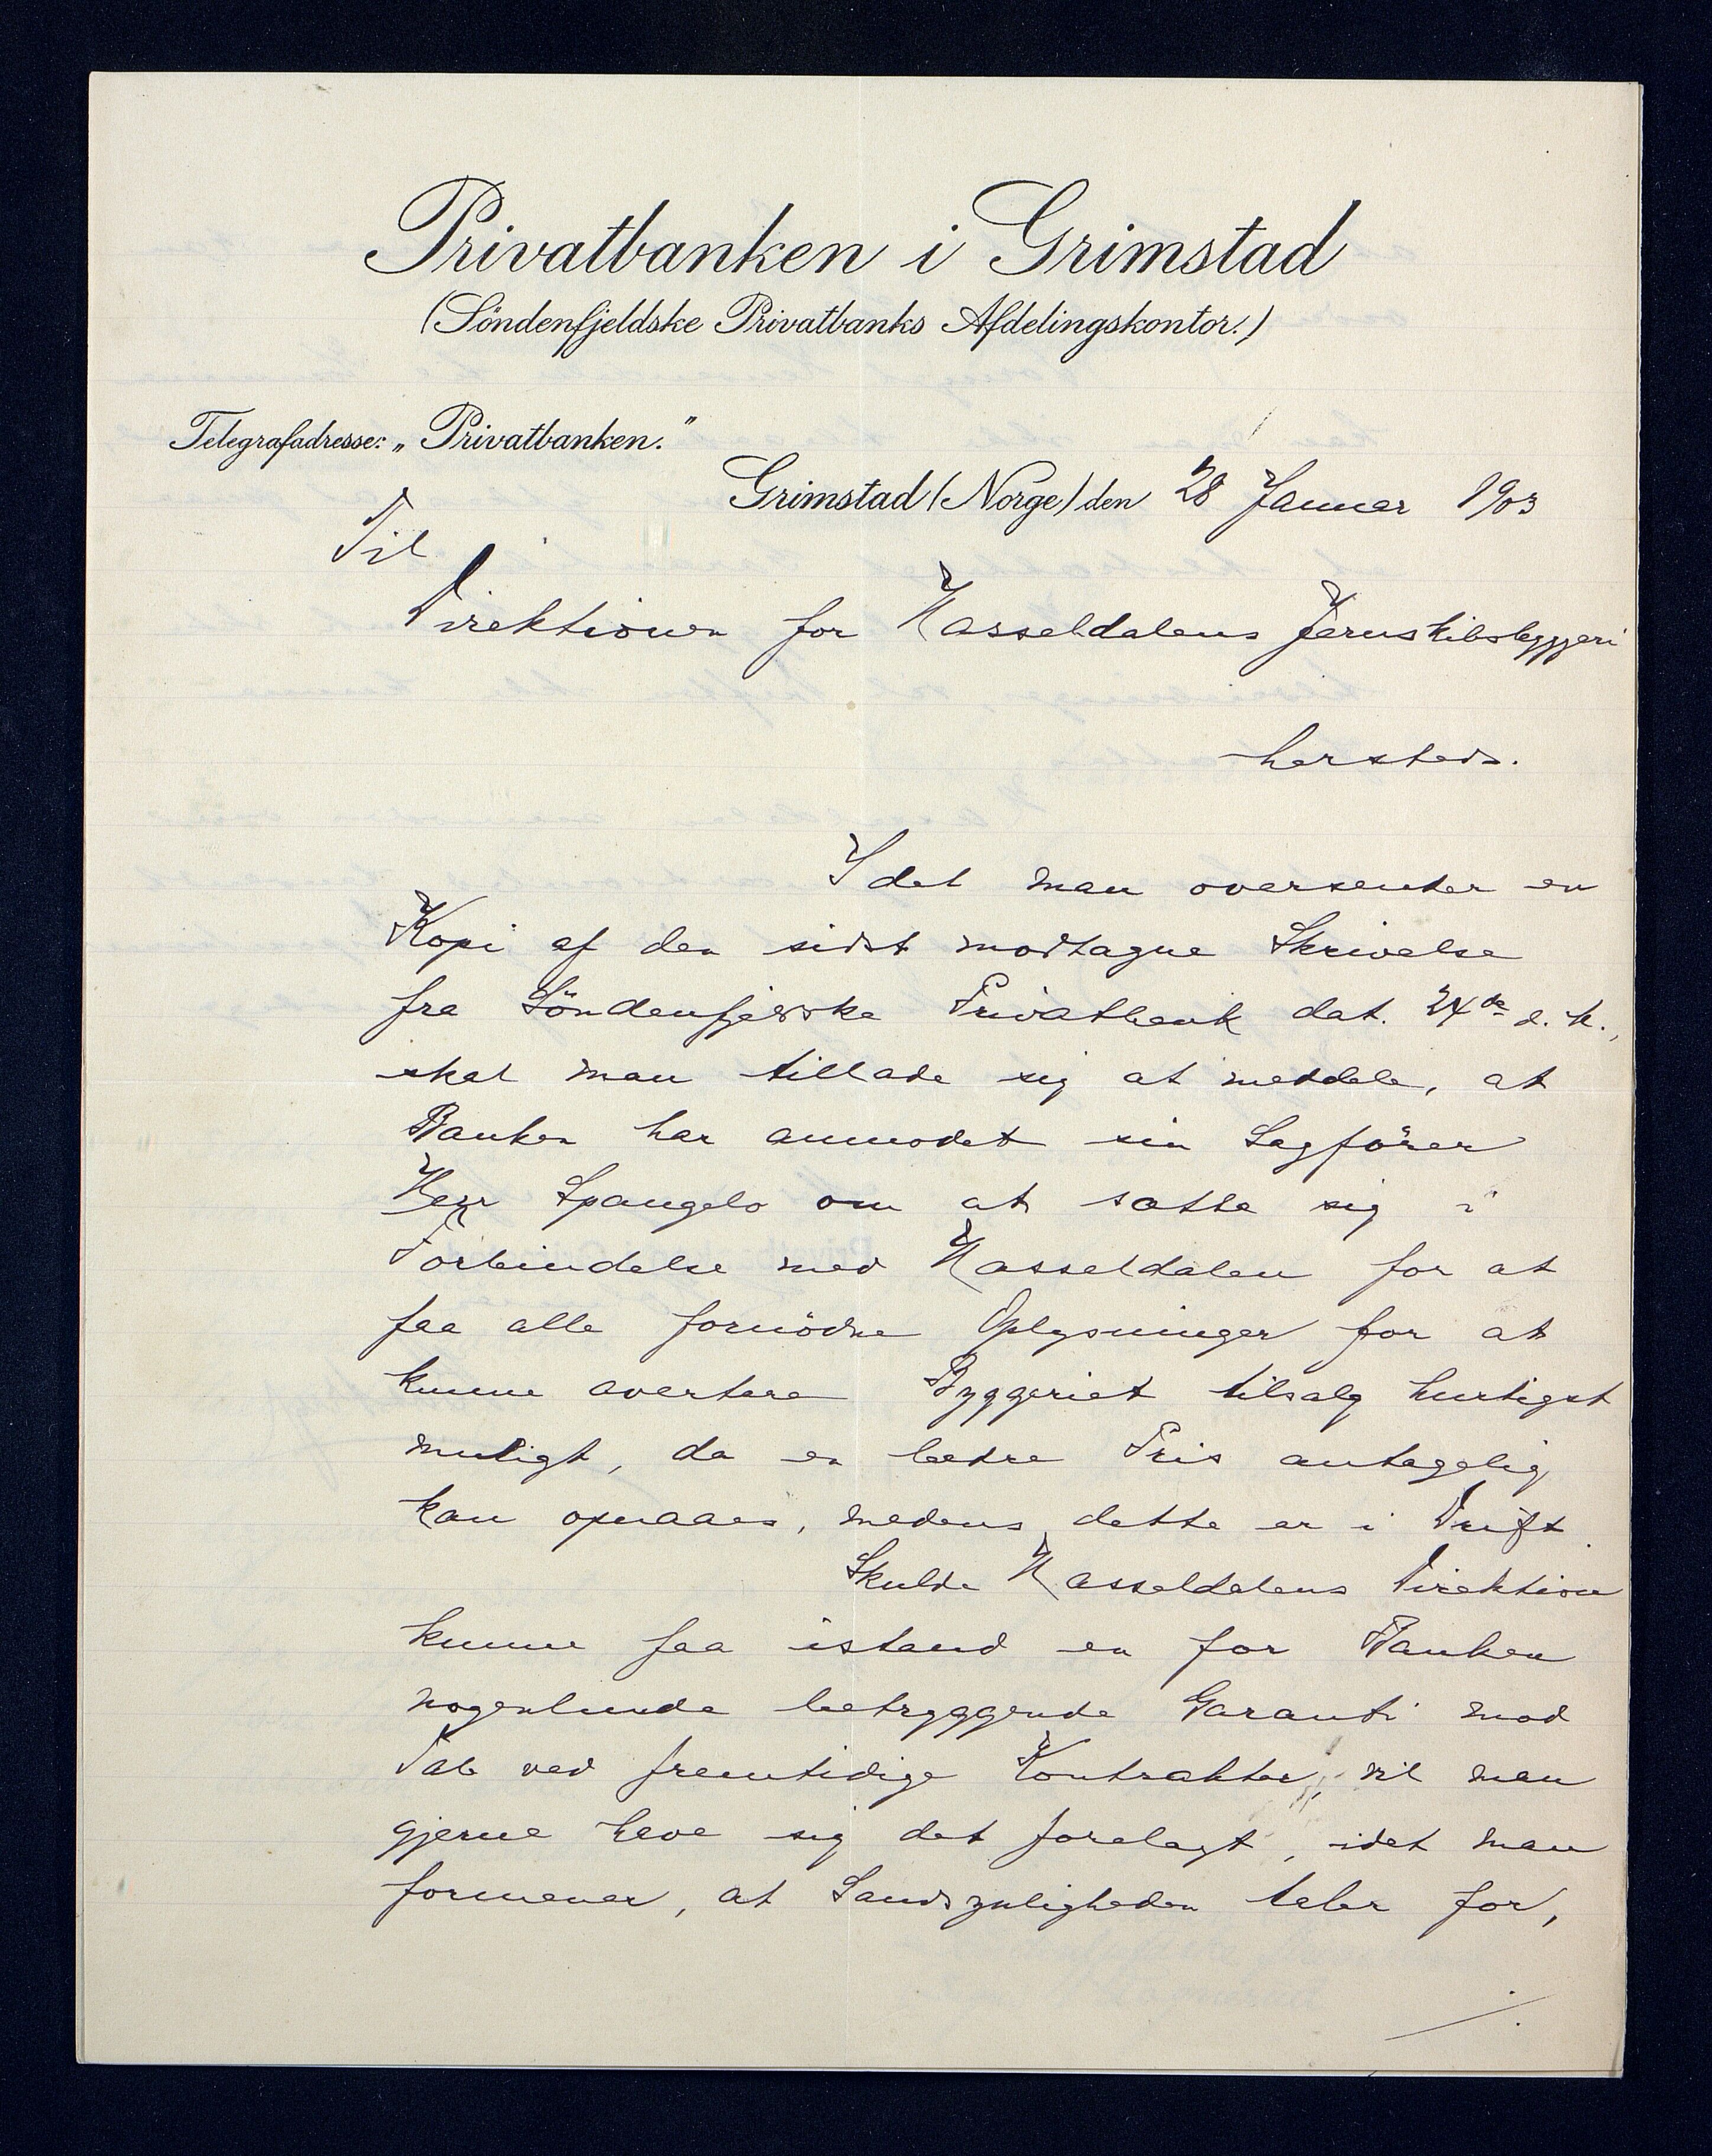 Privatbanken i Grimstad
(Söndenfjeldske Privatbanks Afdelingskontor.)
Telegrafadresse: „Privatbanken."
Grimstad (Norge) den 28 Januar 1903
Til
Direktionen for Hasseldalens Jernskibsbyggeri
hersteds.
Idet man oversender en
Kopi af den sidst modtagne Skrivelse
fra Söndenfjeldske Privatbank dat. 24de d. M.,
skal man tillade sig at meddele, at
Banken har anmodet sin Sagförer
Herr Spangelo om at sætte sig i
Forbindelse med Hasseldalen for at
faa alle fornödne Oplysninger for at
kunne avertere Byggeriet tilsalg hurtigst
muligt, da en bedre Pris antagelig
kan opnaaes, medens dette er i Drift.
Skulde Hasseldalens Direktion
kunne faa istand en for Banken
nogenlunde betryggende Garanti mod
Tab ved fremtidige Kontrakter, vil man
gjerne have sig det forelagt, idet man
formener, at Sandsynligheden taler for,